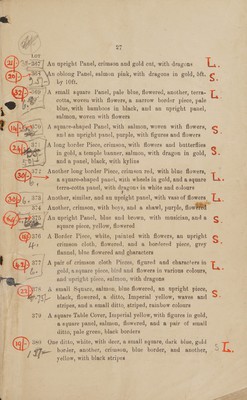 27
LOT
367 An upright Panel, crimson and gold cut, with dragons L.
368 An oblong Panel, salmon pink, with dragons in gold, 5ft. S.
by 10ft.
369 A small square Panel, pale blue, flowered, another, terra- L.
cotta, woven with flowers, a narrow border piece, pale
blue, with bamboos in black, and an upright panel,
salmon, woven with flowers
370 A square-shaped Panel, with salmon, woven with flowers, S.
and an upright panel, purple, with figures and flowers
371 A long border Piece, crimson, with flowers and butterflies S.
in gold, a temple banner, salmon, with dragon in gold,
and a panel, black, with kylins
372 Another long border Piece, crimson red, with blue flowers, L.
a square-shaped panel, with wheels in gold, and a square
terra-cotta panel, with dragons in white and colours
373 Another, similar, and an upright panel, with vase of flowers L.
374 Another, crimson, with boys, and a shawl, purple,
375 An upright Panel, blue and brown, with musician, and a S.
square piece, yellow, flowered
376 A Border Piece, white, painted with flowers, an upright S.
crimson cloth, flowered, and a bordered piece, grey
flannel, blue flowered and characters
377 A pair of crimson cloth Pieces, figured and characters in L.
gold, a square piece, bird and flowers in various colours,
and upright piece, salmon, with dragons
378 A small Square, salmon, blue flowered, an upright piece, S.
black, flowered, a ditto, Imperial yellow, waves and
stripes, and a small ditto, striped, rainbow colours
379 A square Table Cover, Imperial yellow, with figures in gold,
a square panel, salmon, flowered, and a pair of small
ditto, pale green, black borders
380 One ditto, white, with deer, a small square, dark blue, gold S L.
border, another, crimson, blue border, and another,
yellow, with black stripes